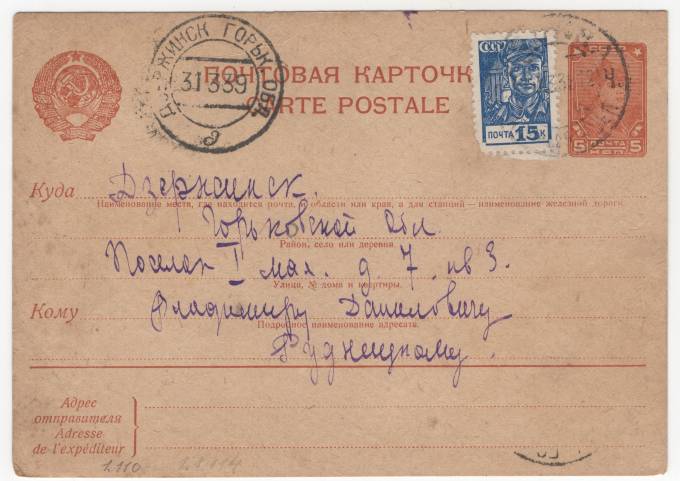 ДЗЕРЖИНСК ГОРЬК. ОБЛ.
31 3 39
СССР
ПОЧТА 15 К
ПОЧТА
5 КОП. 5
ПОЧТОВАЯ КАРТОЧКА
CARTE POSTALE
Куда Дзержинск.
Наименование места, где находится почта, и области или края, а для станций — наименование железной дороги.
Горьковской обл.
Район, село или деревня
Поселок I мая. д. 7. кв 3.
Улица, № дома и квартиры.
Кому Владимиру Даниловичу
Подробное наименование адресата.
Рудницкому.
Адрес
отправителя
Adresse
de l'expéditeur